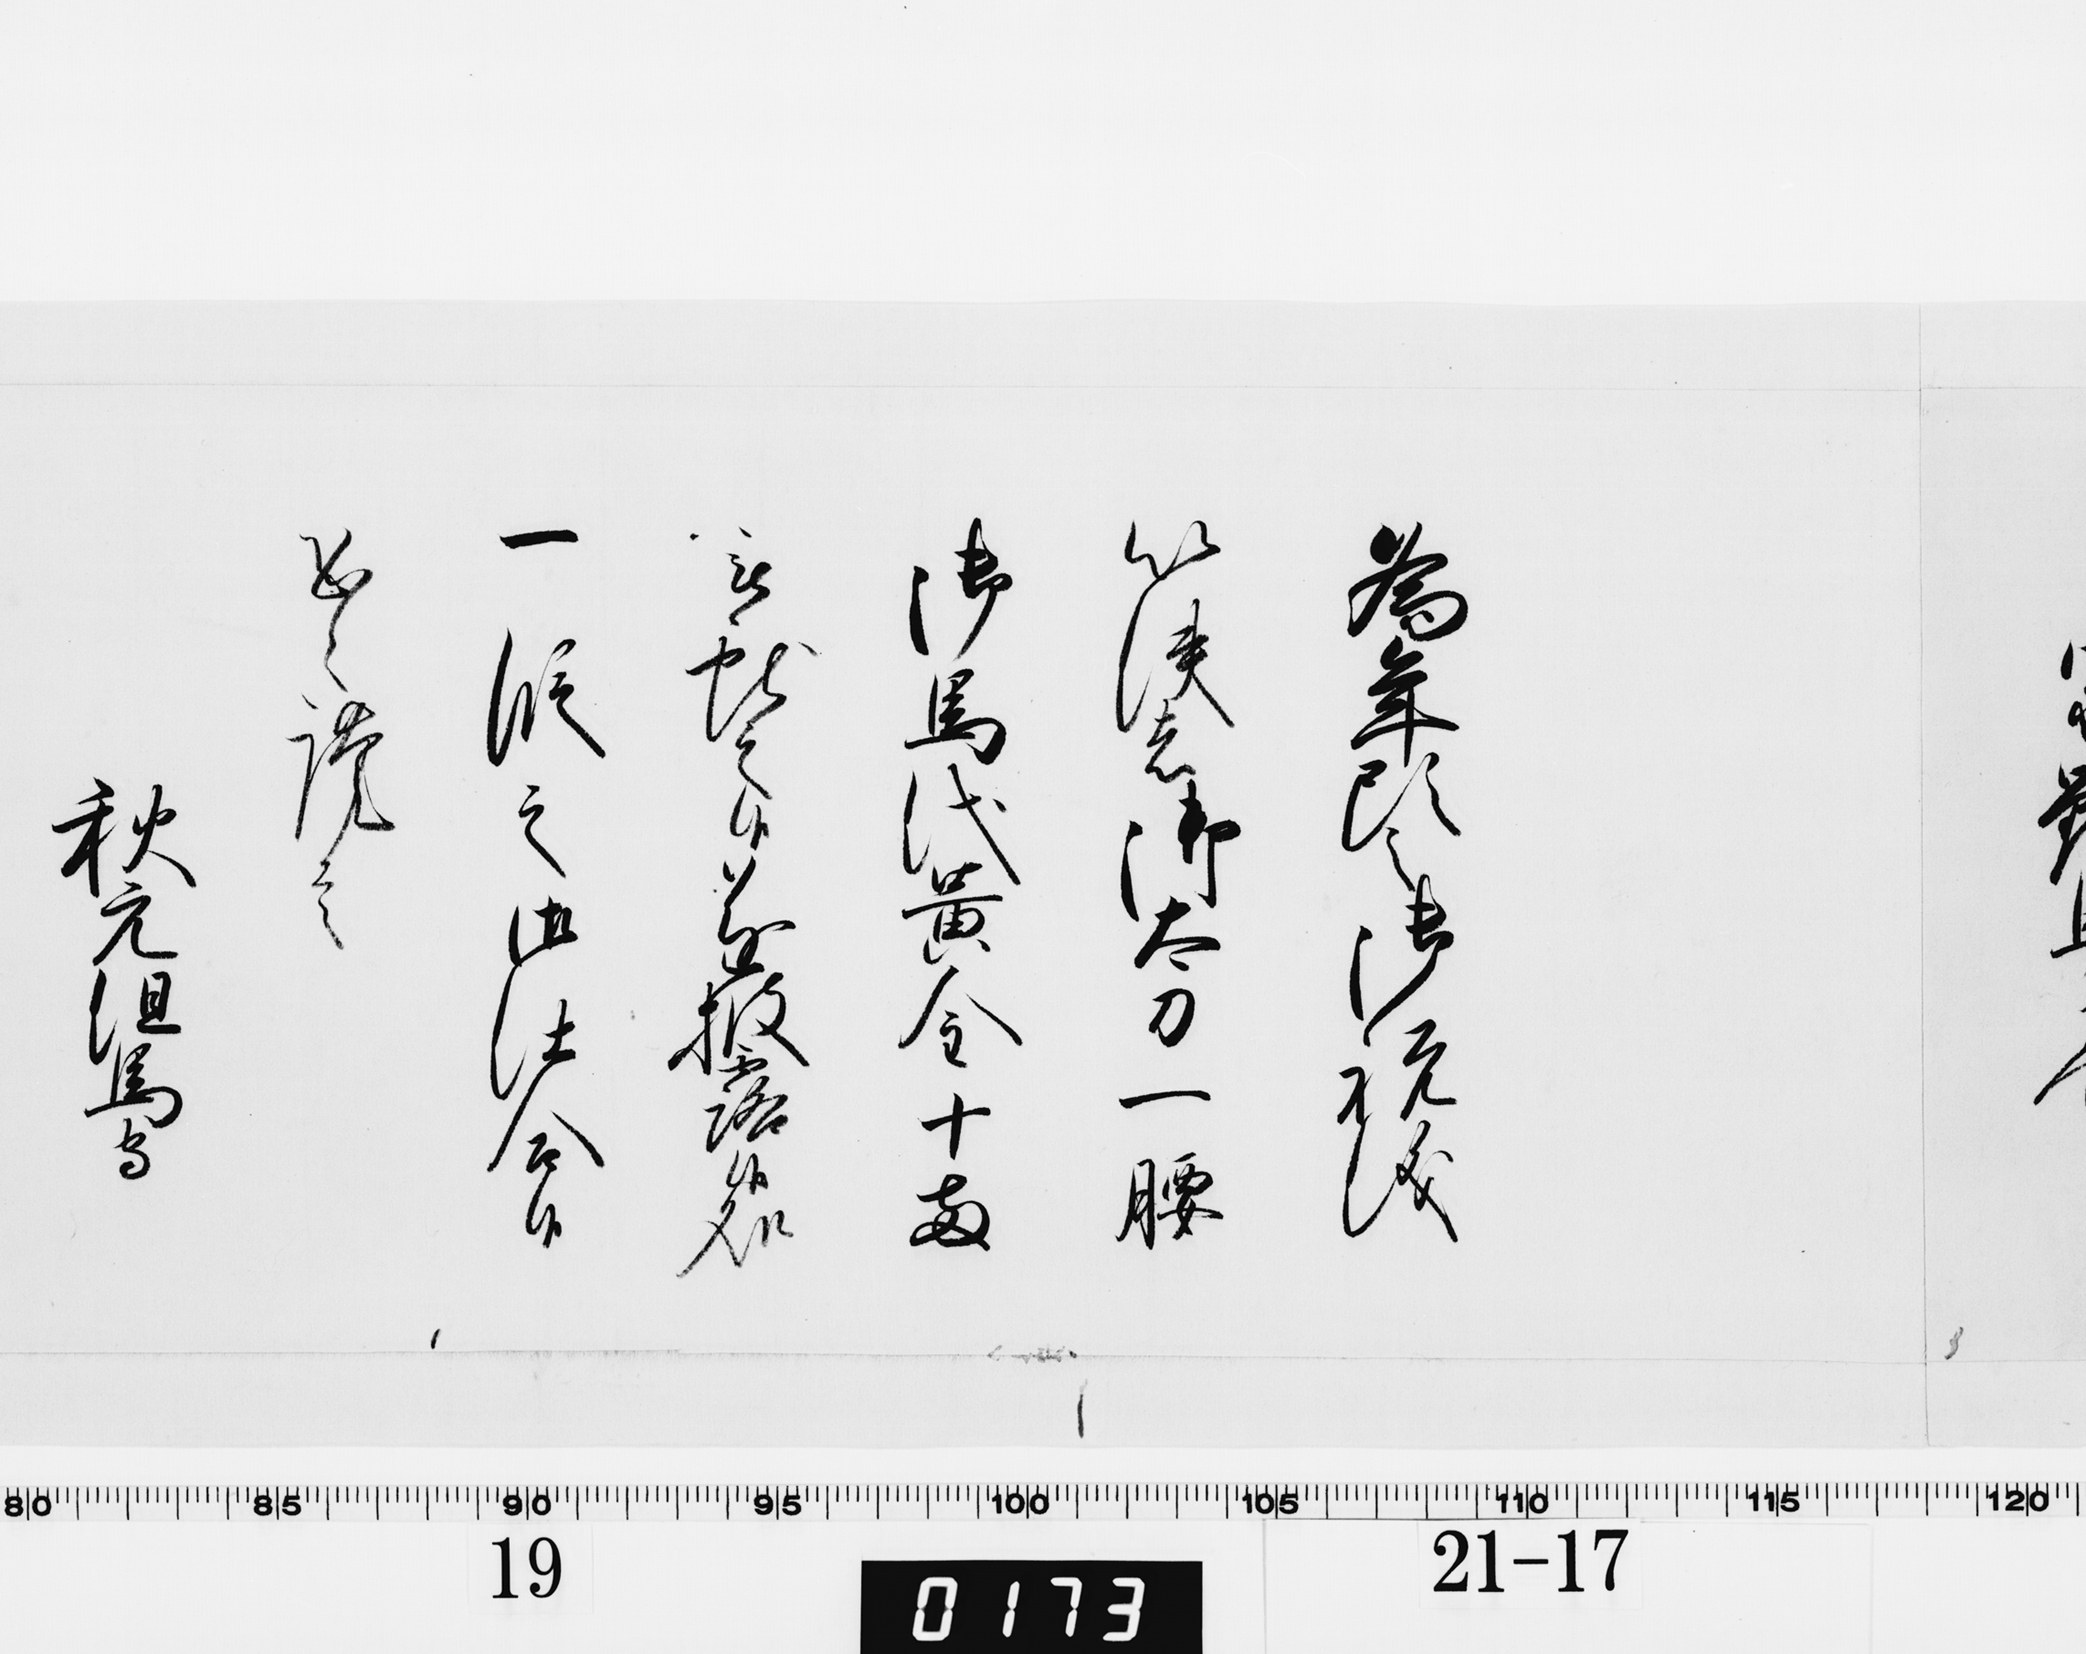 為年頭之御祝儀
以使者御太刀一腰
御馬代黄金十両
献之候遂披露候処
一段之御仕合候
恐々謹言
秋元但馬守
80 85 90 95 100 105 110 115 120
19
0173
21-17